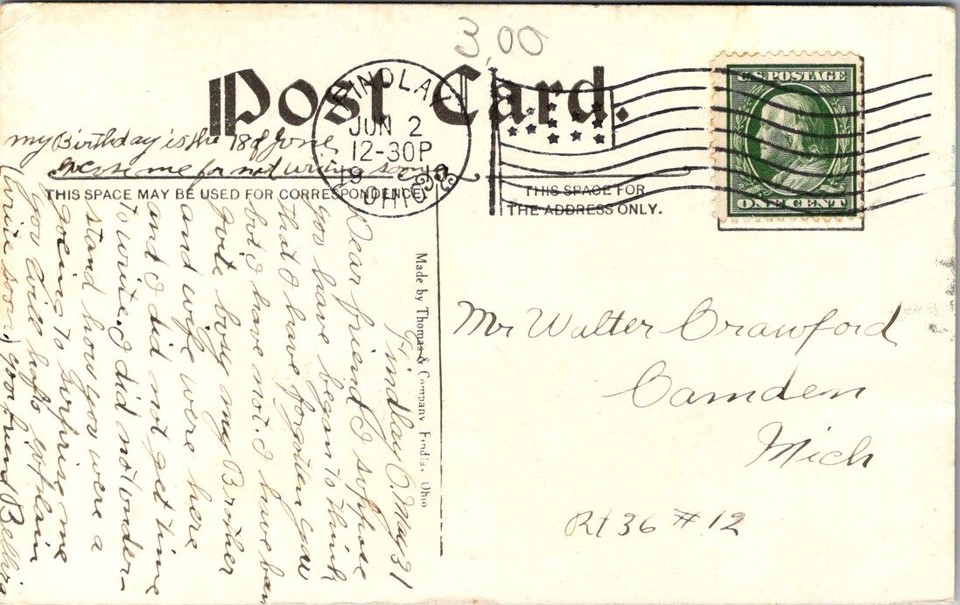 3,00
Post Card.
FINDLAY
JUN 2
12-30P
OHIO
U.S. POSTAGE
ONE CENT
my Birthday is the 18 of June
excuse me for not writing soon
THIS SPACE MAY BE USED FOR CORRESPONDENCE
THIS SPACE FOR
THE ADDRESS ONLY.
Made by Thomas & Company, Findlay, Ohio
Findlay O May 31
Dear friend I suppose
you have began to think
that I have forgotten you
but I have not. I have ban
my Brother
and wife were here
and I did not get time
to write, I did not under-
stand how you were a
going to surprise me
you will hafto
write soon your friend
Mr Walter Crawford
Camden
Mich
Rt 36 # 12